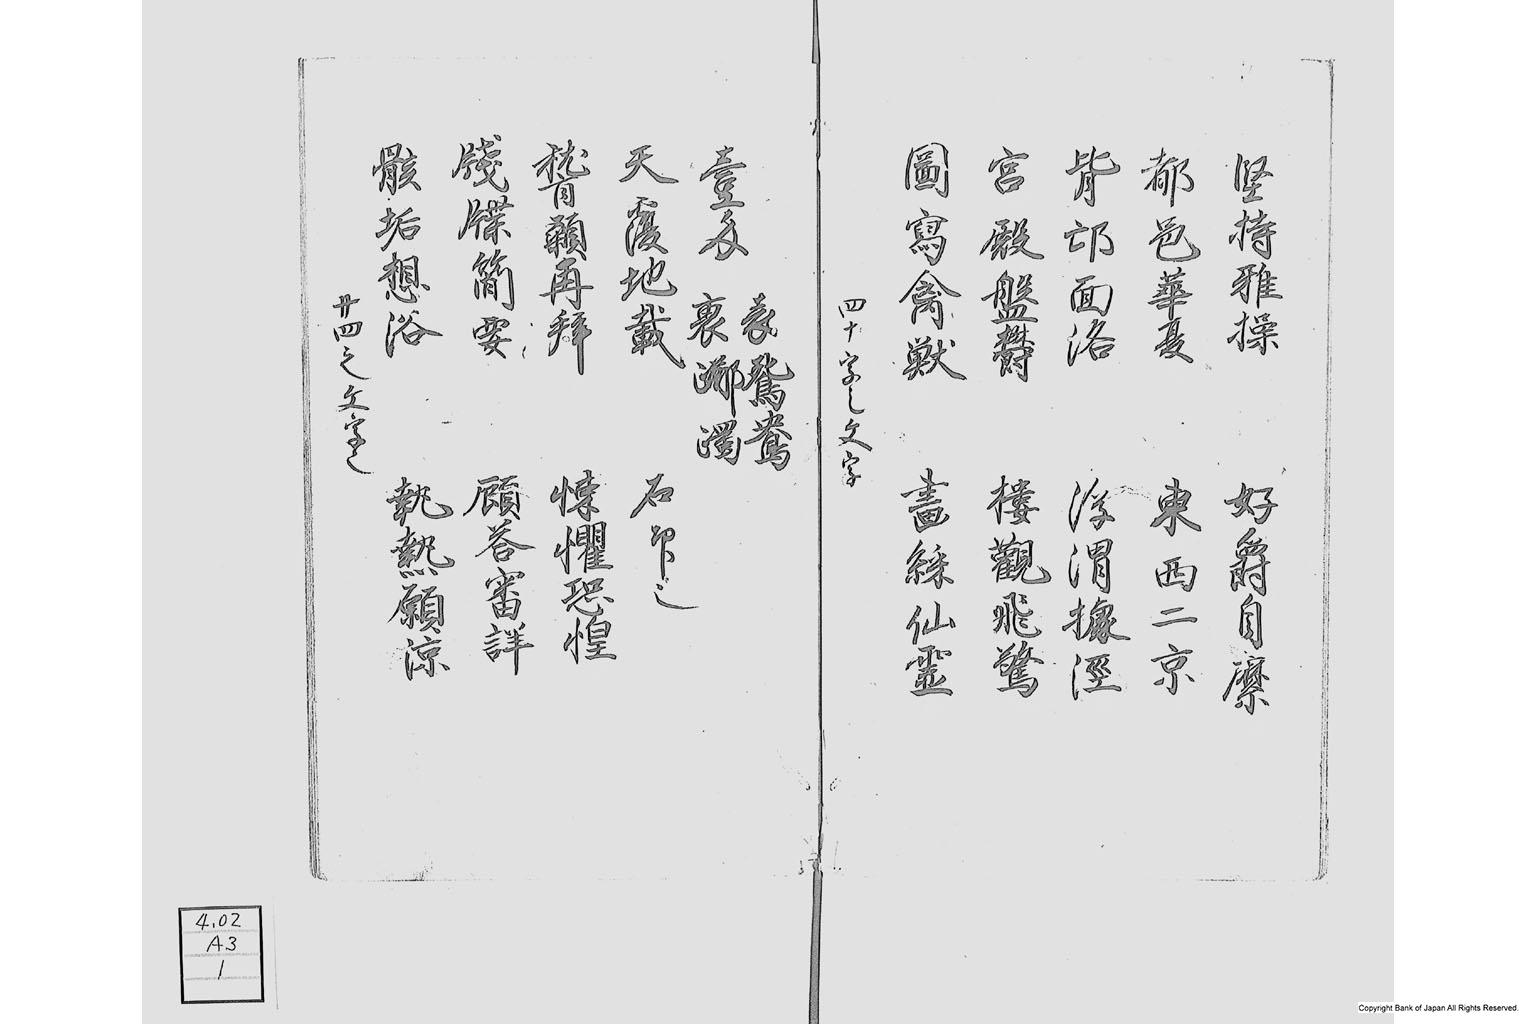 堅持雅操 好爵自縻
都邑華夏 東西二京
背邙面洛 浮渭據涇
宮殿盤鬱 樓觀飛驚
圖寫禽獸 畫綵仙靈
四十字之文字
壹
天覆地載
稽顙再拜 悚懼恐惶
牋牒簡要 顧答審詳
骸垢想浴 執熱願涼
廿四之文字之
4.02
A3
1
Copyright Bank of Japan All Rights Reserved.